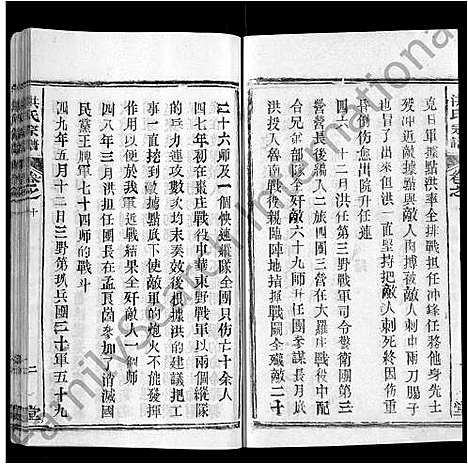 克日軍據點洪率全排戰担任冲鋒任務他身先士
卒冲入敵據點與敵人肉搏殺敵人二由刀刺腸子
冒了出来但洪一直堅持把敵人刺死終因傷重
任長傷愈出院升任連
四六年十二月洪任第三野戰軍司令警衛團第三
營營長後編入二旅四團三營在大羅庄戰役中配
合友軍全歼敵六十九師升任團參謀長月底
投入魯南戰役親臨陣地指揮戰鬭全殲敵二十
二十六師及一個快速縱隊全團只伤亡十余人
四七年初在棗庄戰役中華東野戰軍以兩個縱隊
的兵力連攻數次均未奏效後根據洪的建議把工
事一直挖到敵據點底下使敵軍的炮火失去
作用便於我軍近戰結果全歼敵人一個師
四八年三月洪担任團長在孟良崮參加了消滅國
民黨王牌軍七十四師的戰斗
四九年五月十二日三野第玖兵團三十軍五十九
洪氏宗譜
卷之十
二
堂
洪氏宗譜
卷之
堂